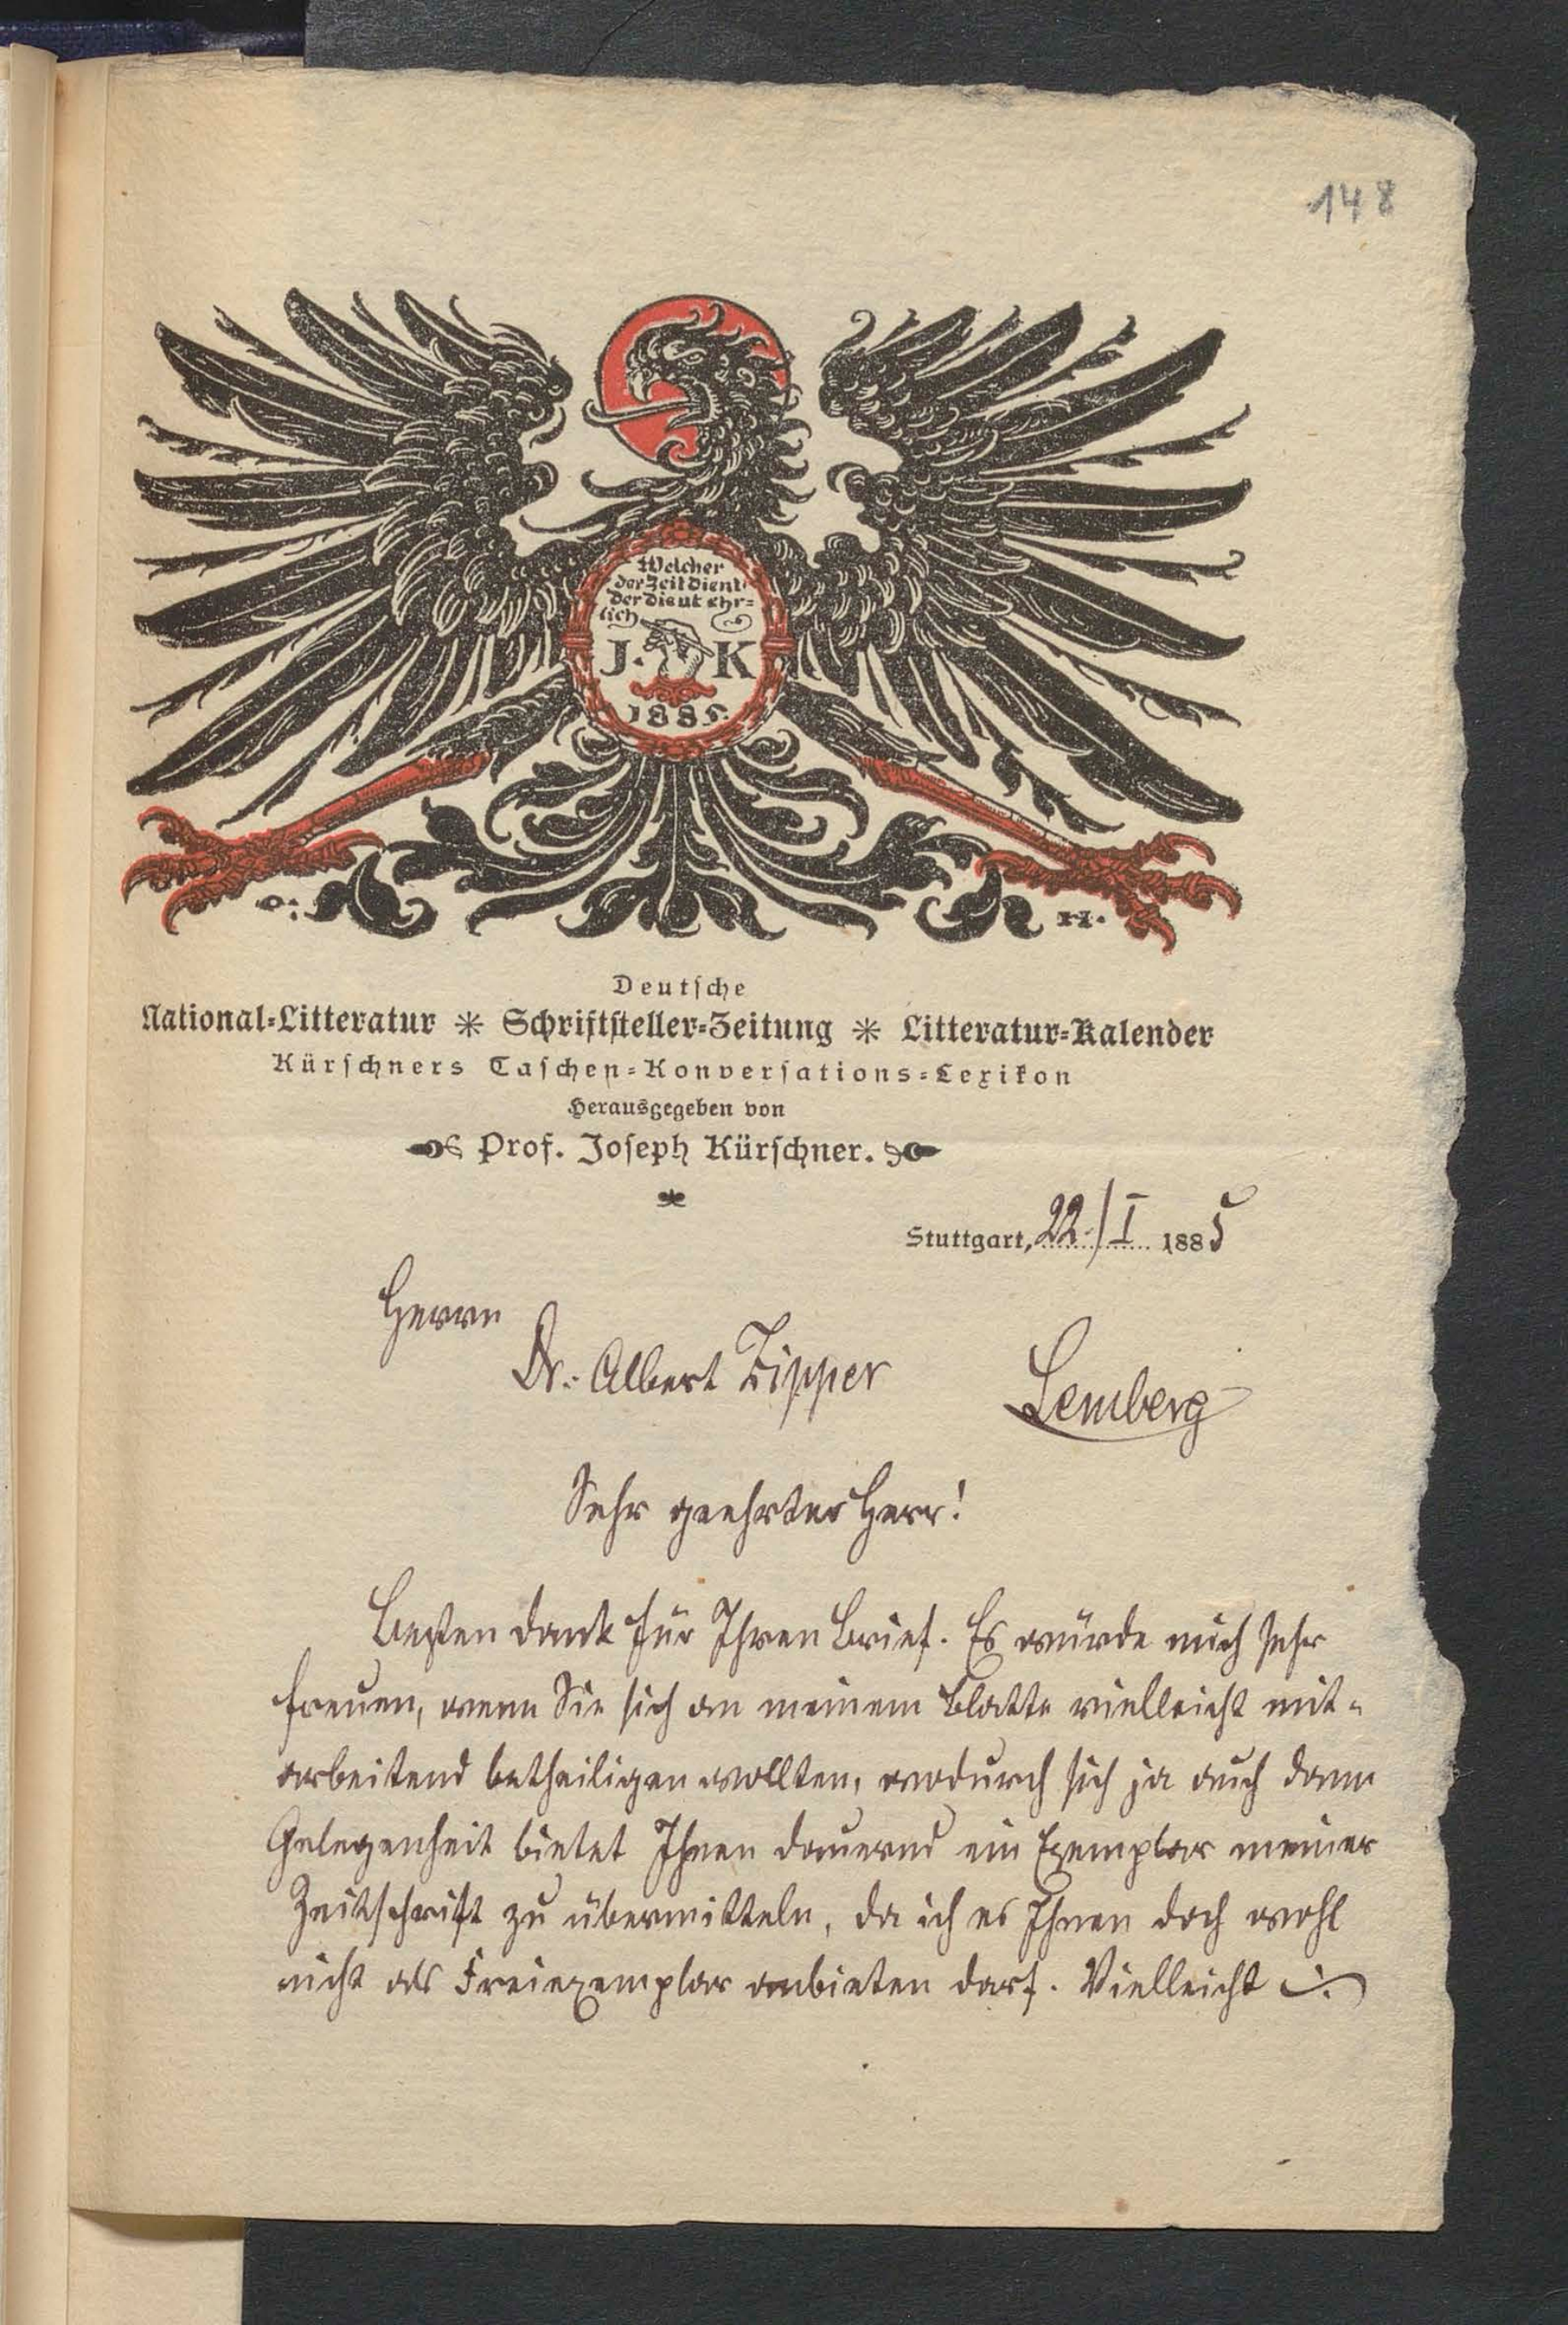 148
Welcher
der Zeit dient
der dient ehr=
lich
J. K
1885.
O. H.
Deutsche
National=Litteratur * Schriftsteller=Zeitung * Litteratur=Kalender
Kürschners Taschen=Konversations=Lexikon
Herausgegeben von
Prof. Joseph Kürschner.
Stuttgart, 22./I 1885
Herrn
Dr. Albert Zipper
Lemberg
Sehr geehrter Herr!
Besten Dank für Ihren Brief. Es würde mich sehr
freuen, wenn Sie sich an meinem Blatte vielleicht mit-
arbeitend betheiligen wollten, wodurch sich ja auch dann
Gelegenheit bietet Ihnen dauernd ein Exemplar meiner
Zeitschrift zu übermitteln, da ich es Ihnen doch wohl
nicht als Freiexemplar anbieten darf. Vielleicht